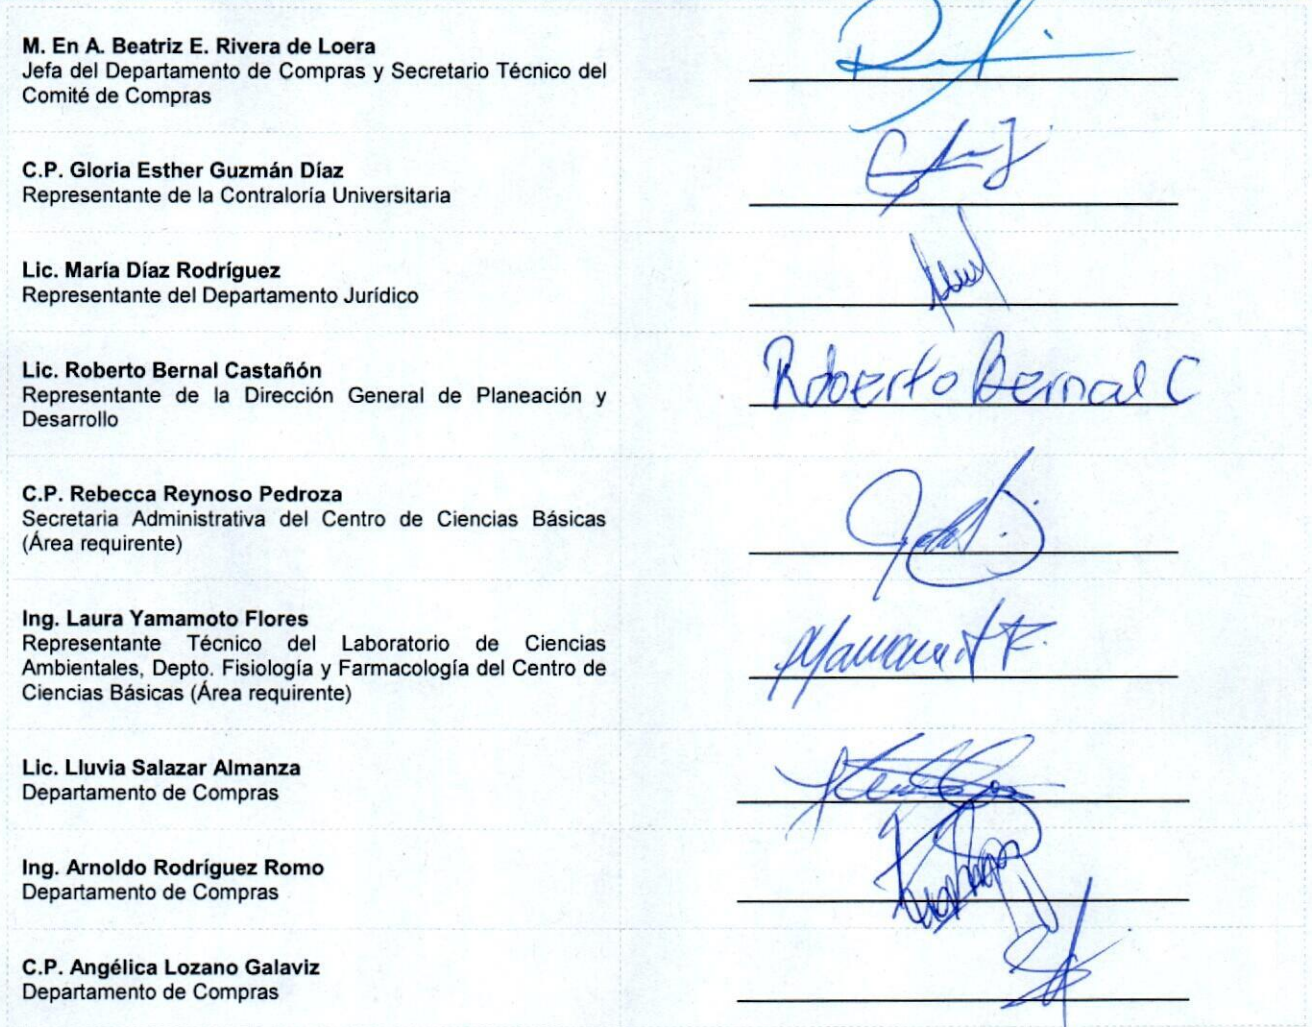 M. En A. Beatriz E. Rivera de Loera
Jefa del Departamento de Compras y Secretario Técnico del
Comité de Compras
C.P. Gloria Esther Guzmán Díaz
Representante de la Contraloría Universitaria
Lic. María Díaz Rodríguez
Representante del Departamento Jurídico
Lic. Roberto Bernal Castañón
Representante de la Dirección General de Planeación y
Desarrollo
Roberto Bernal C
C.P. Rebecca Reynoso Pedroza
Secretaria Administrativa del Centro de Ciencias Básicas
(Área requirente)
Ing. Laura Yamamoto Flores
Representante Técnico del Laboratorio de Ciencias
Ambientales, Depto. Fisiología y Farmacología del Centro de
Ciencias Básicas (Área requirente)
Lic. Lluvia Salazar Almanza
Departamento de Compras
Ing. Arnoldo Rodríguez Romo
Departamento de Compras
C.P. Angélica Lozano Galaviz
Departamento de Compras